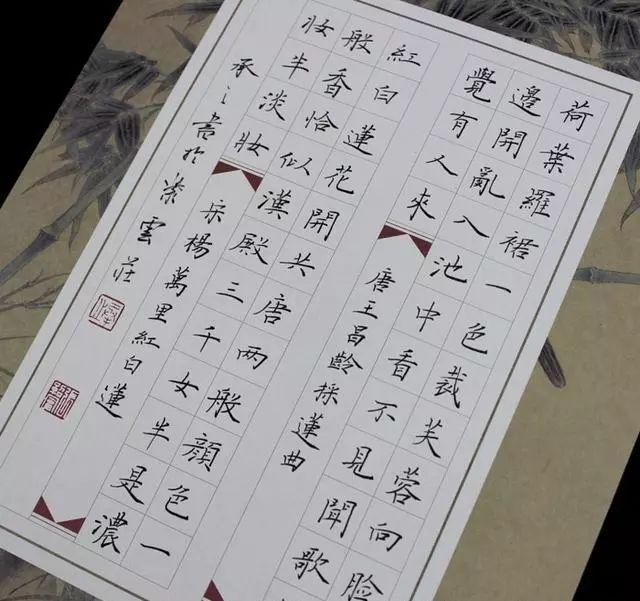 荷葉羅裙一色裁芙蓉向臉
邊開亂入池中看不見聞歌
覺有人來
唐王昌齡採蓮曲
紅白蓮花開共唐兩般顏色一
般香恰似漢殿三千女半是濃
妝半淡妝
宋楊萬里紅白蓮
承之書於紫雲莊